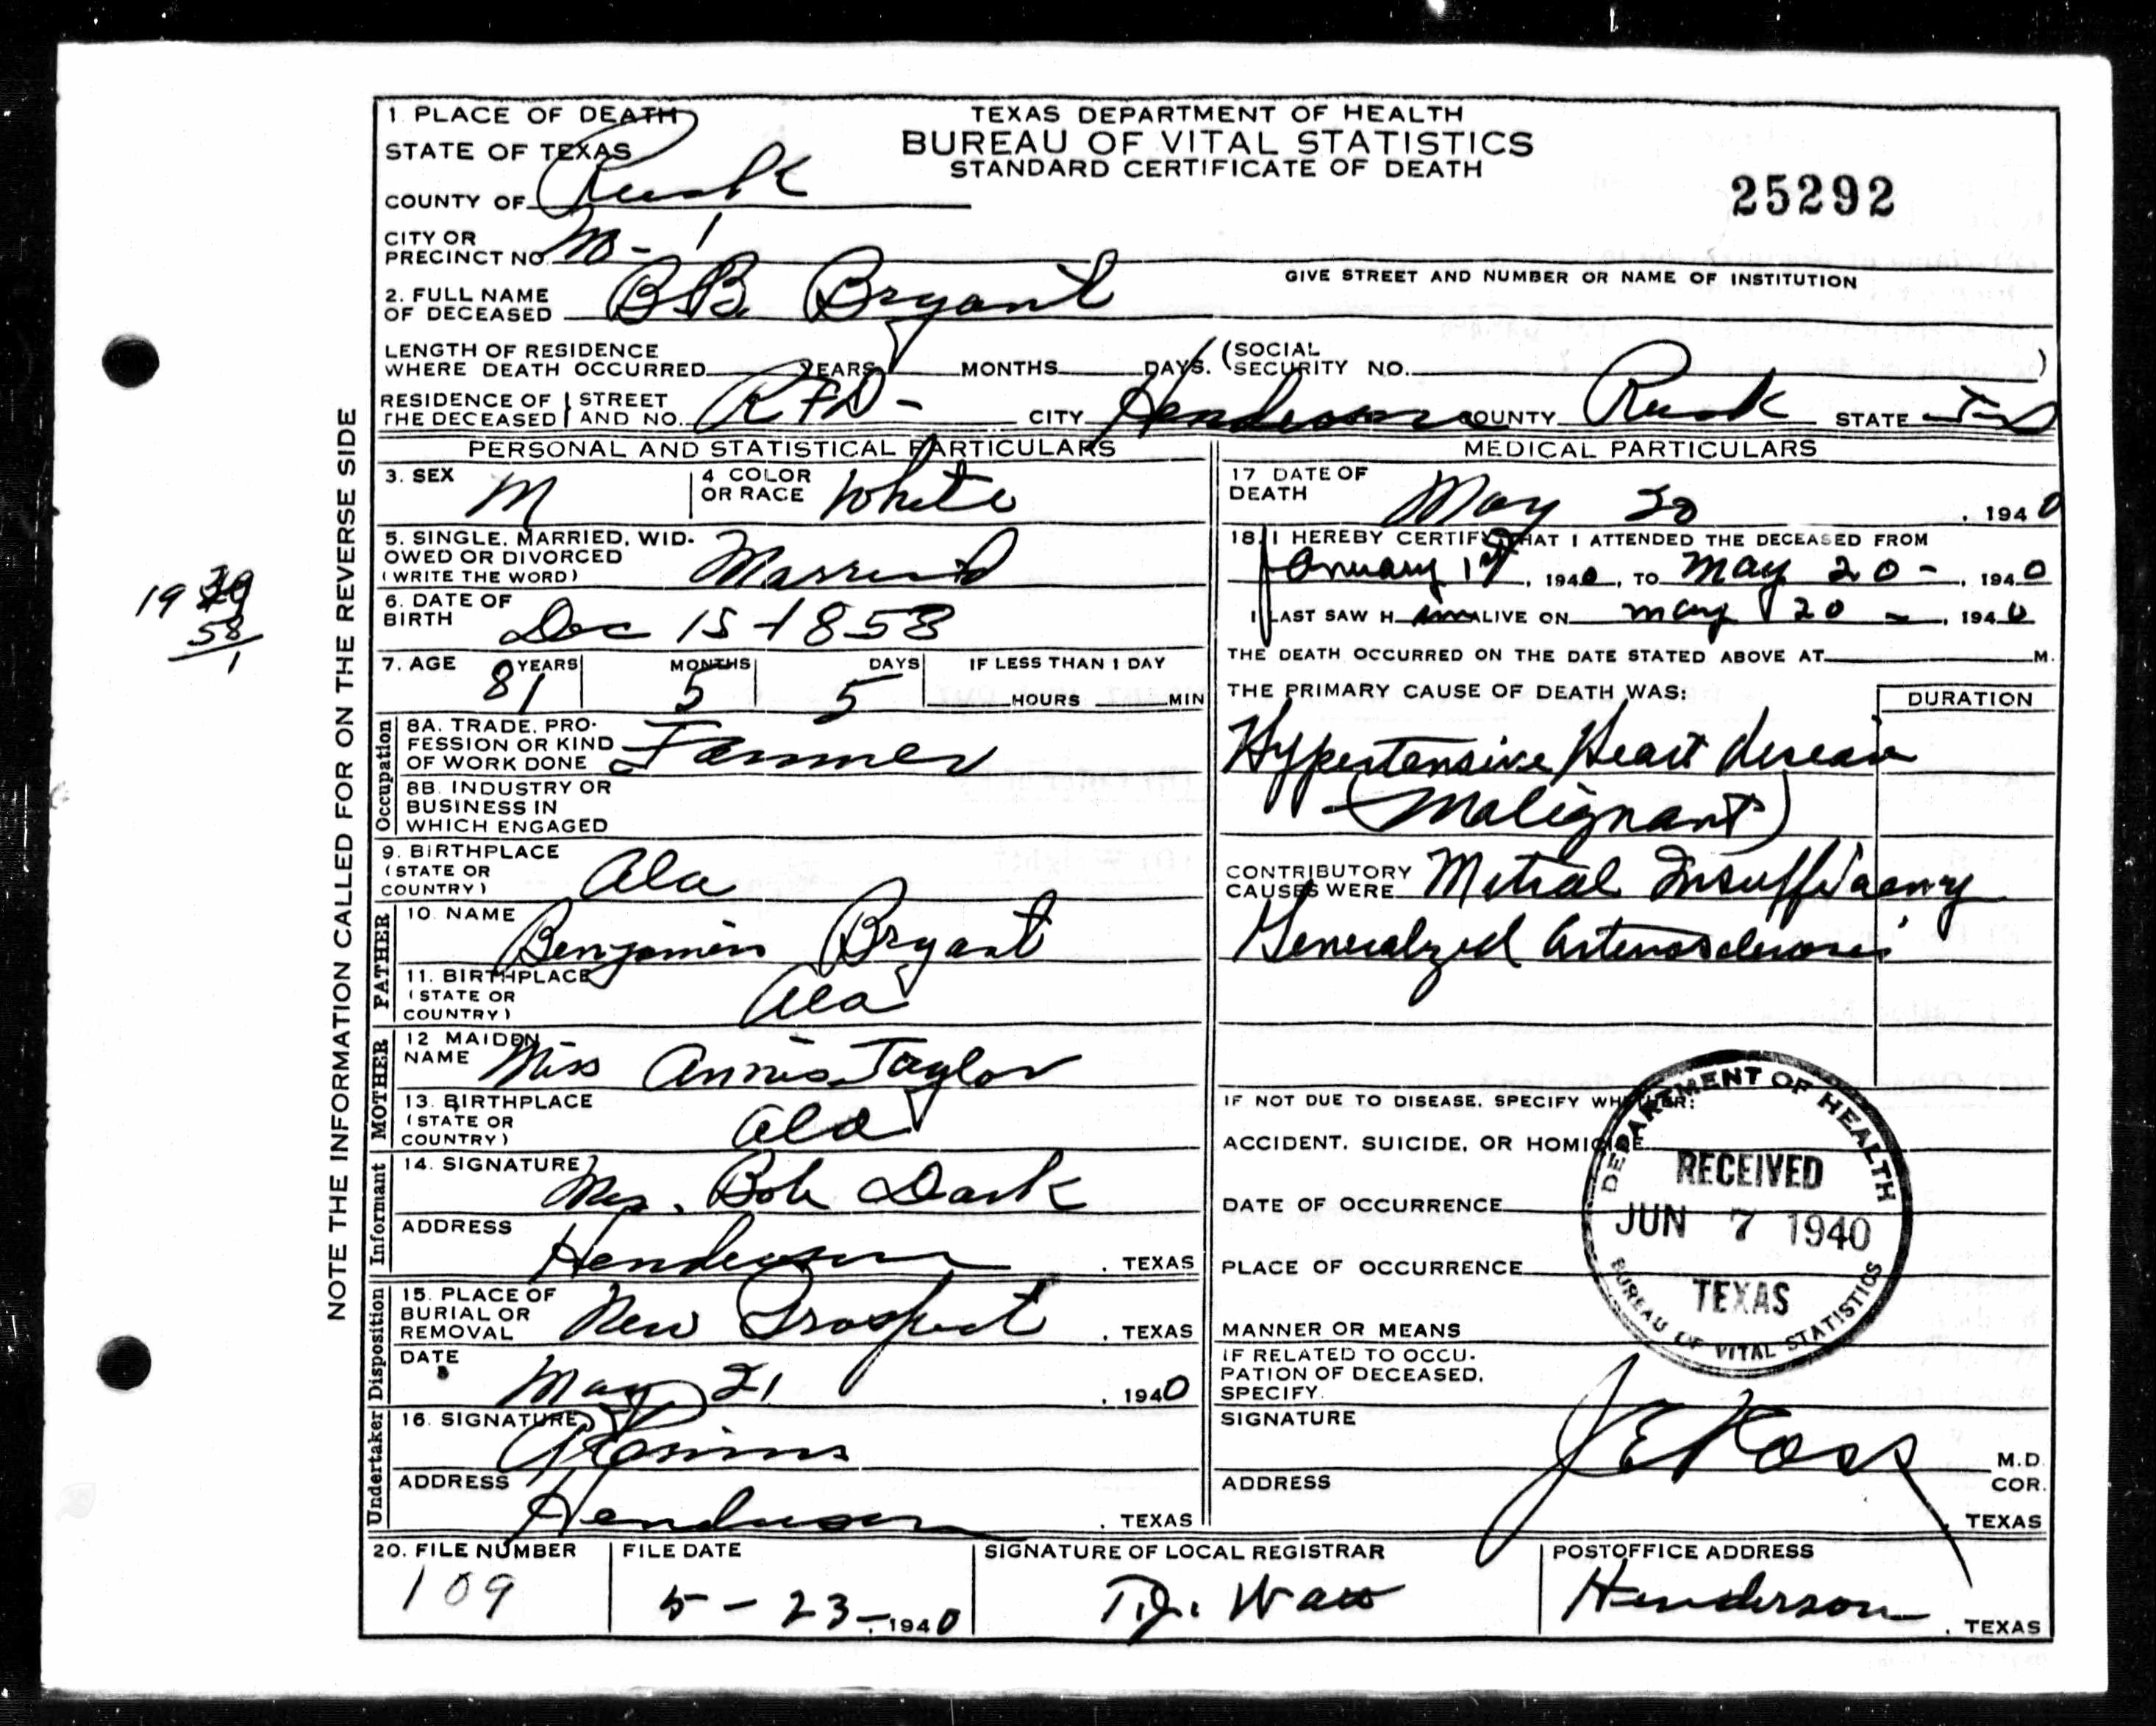 1. PLACE OF DEATH
TEXAS DEPARTMENT OF HEALTH
BUREAU OF VITAL STATISTICS
STANDARD CERTIFICATE OF DEATH
STATE OF TEXAS
COUNTY OF Rusk
25292
CITY OR
PRECINCT NO. 1
GIVE STREET AND NUMBER OR NAME OF INSTITUTION
2. FULL NAME
OF DECEASED B.B. Bryant
LENGTH OF RESIDENCE
WHERE DEATH OCCURRED YEARS MONTHS DAYS. (SOCIAL SECURITY NO. )
RESIDENCE OF THE DECEASED } STREET AND NO. RFD - CITY Henderson COUNTY Rusk STATE
NOTE THE INFORMATION CALLED FOR ON THE REVERSE SIDE
PERSONAL AND STATISTICAL PARTICULARS
3. SEX M
4 COLOR OR RACE White
5. SINGLE, MARRIED, WID-
OWED OR DIVORCED
(WRITE THE WORD) Married
6. DATE OF
BIRTH Dec 15-1858
19
58
1
7. AGE 81 YEARS 5 MONTHS 5 DAYS IF LESS THAN 1 DAY
HOURS MIN
Occupation
8A. TRADE, PRO-
FESSION OR KIND
OF WORK DONE Farmer
8B. INDUSTRY OR
BUSINESS IN
WHICH ENGAGED
9. BIRTHPLACE
(STATE OR
COUNTRY) Ala
FATHER
10. NAME Benjamin Bryant
11. BIRTHPLACE
(STATE OR
COUNTRY) Ala
MOTHER
12 MAIDEN
NAME Miss Annis Taylor
13. BIRTHPLACE
(STATE OR
COUNTRY) Ala
Informant
14. SIGNATURE Mrs. Bob Dark
ADDRESS Henderson, TEXAS
Disposition
15. PLACE OF
BURIAL OR
REMOVAL New Prospect, TEXAS
DATE May 21, 1940
Undertaker
16. SIGNATURE
ADDRESS Henderson, TEXAS
MEDICAL PARTICULARS
17 DATE OF
DEATH May 20, 1940
18. I HEREBY CERTIFY THAT I ATTENDED THE DECEASED FROM
January 1st, 1940, TO May 20-, 1940
I LAST SAW H im ALIVE ON May 20 -, 1940
THE DEATH OCCURRED ON THE DATE STATED ABOVE AT M.
THE PRIMARY CAUSE OF DEATH WAS: DURATION
Hypertensive Heart disease
(Malignant)
CONTRIBUTORY
CAUSES WERE Mitral Insufficiency
Generalized Arteriosclerosis
IF NOT DUE TO DISEASE, SPECIFY WHETHER:
ACCIDENT, SUICIDE, OR HOMICIDE
DATE OF OCCURRENCE
PLACE OF OCCURRENCE
MANNER OR MEANS
IF RELATED TO OCCU-
PATION OF DECEASED,
SPECIFY.
DEPARTMENT OF HEALTH
RECEIVED
JUN 7 1940
TEXAS
BUREAU OF VITAL STATISTICS
SIGNATURE J E Ross M.D.
COR.
ADDRESS , TEXAS
20. FILE NUMBER 109
FILE DATE 5-23-, 1940
SIGNATURE OF LOCAL REGISTRAR
POSTOFFICE ADDRESS Henderson, TEXAS